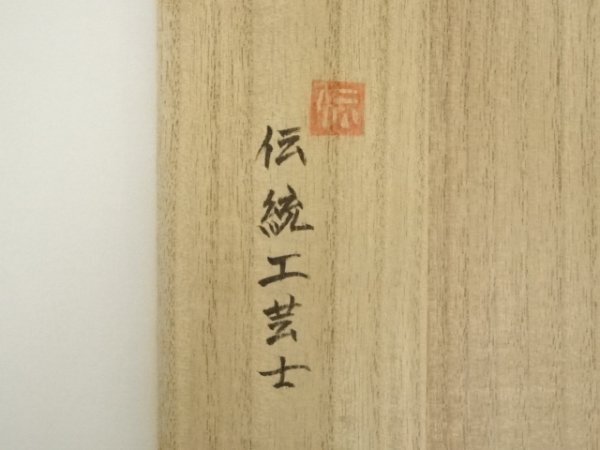 伝統工芸士